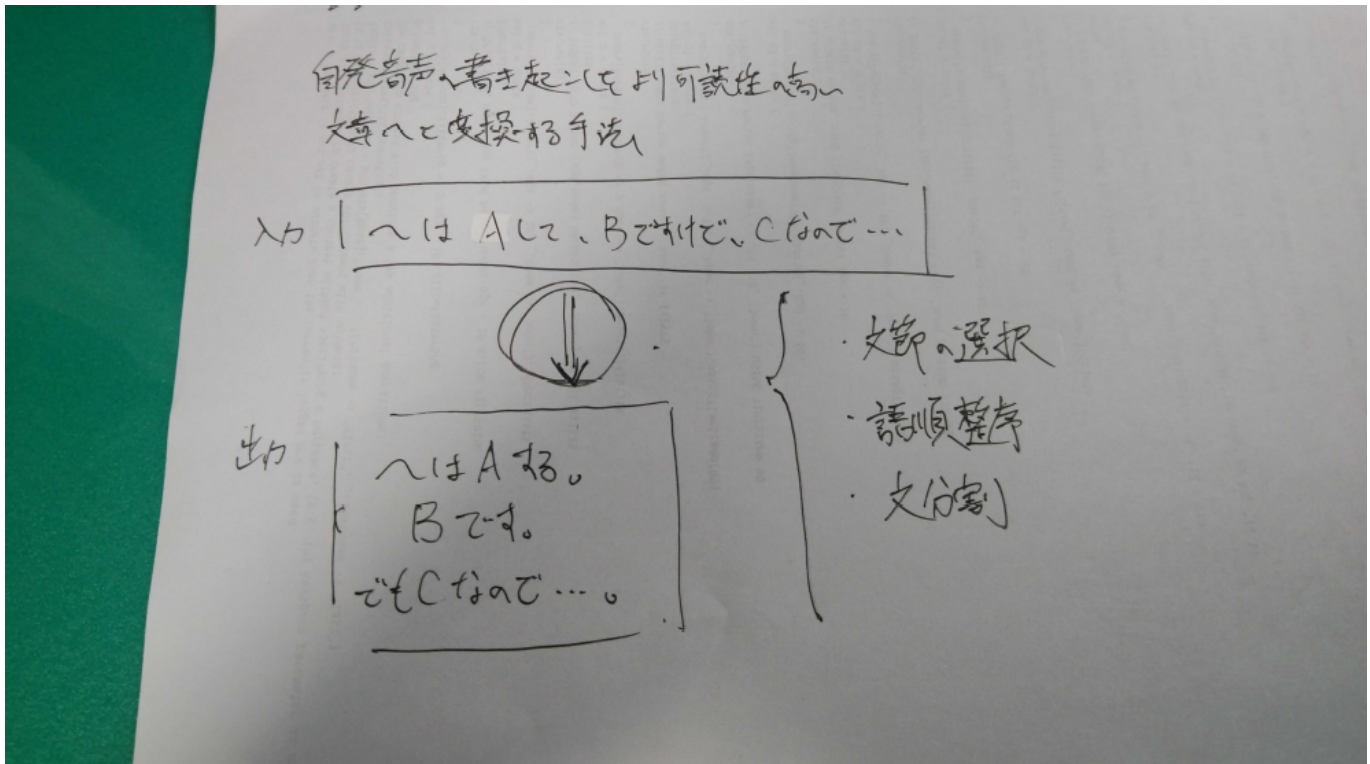 自発音声の書き起こしをより可読性の高い
文章へと変換する手法
入力
〜は Aして、Bですけど、Cなので…
出力
〜は Aする。
Bです。
でもCなので…。
・文節の選択
・語順整序
・文分割